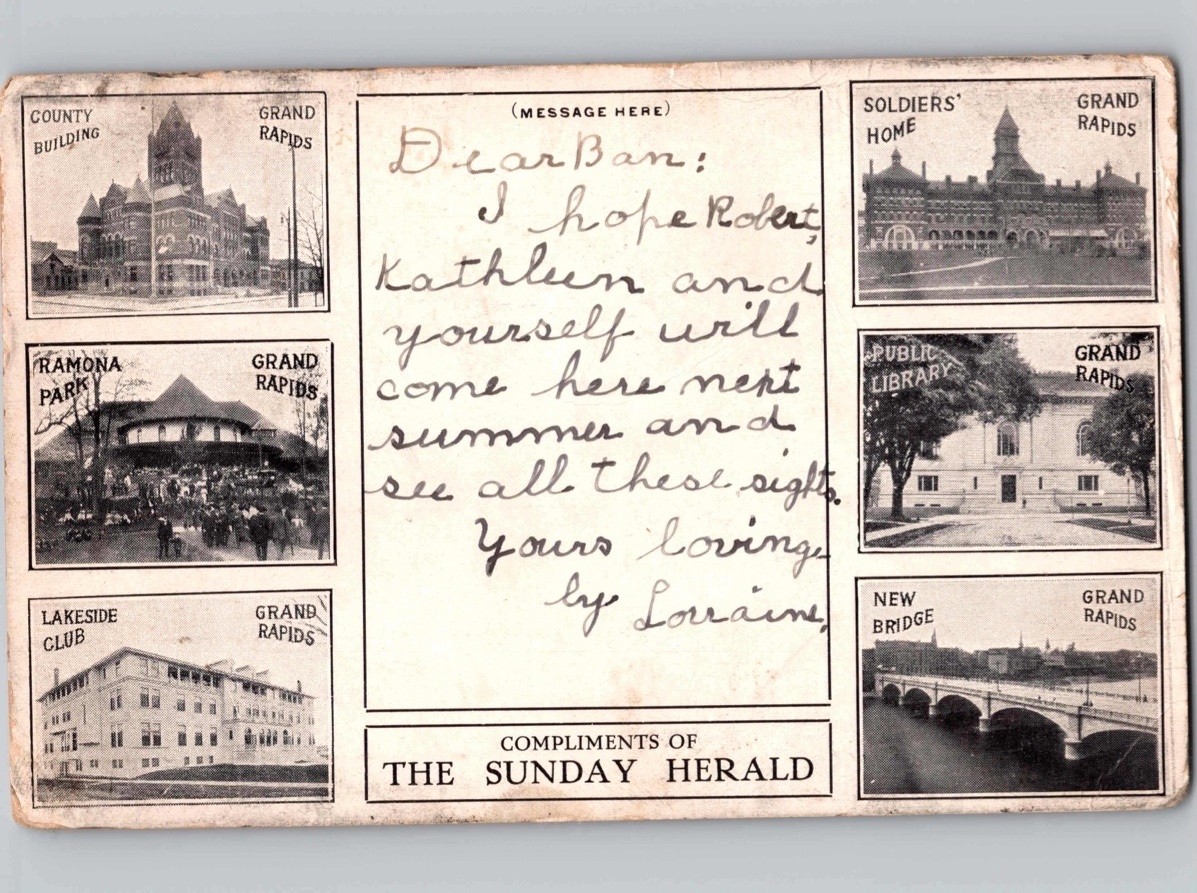 COUNTY BUILDING
GRAND RAPIDS
RAMONA PARK
GRAND RAPIDS
LAKESIDE CLUB
GRAND RAPIDS
(MESSAGE HERE)
Dear Ban:
I hope Robert,
Kathleen and
yourself will
come here next
summer and
see all these sights.
Yours loving-
ly Lorraine,
COMPLIMENTS OF
THE SUNDAY HERALD
SOLDIERS' HOME
GRAND RAPIDS
PUBLIC LIBRARY
GRAND RAPIDS
NEW BRIDGE
GRAND RAPIDS